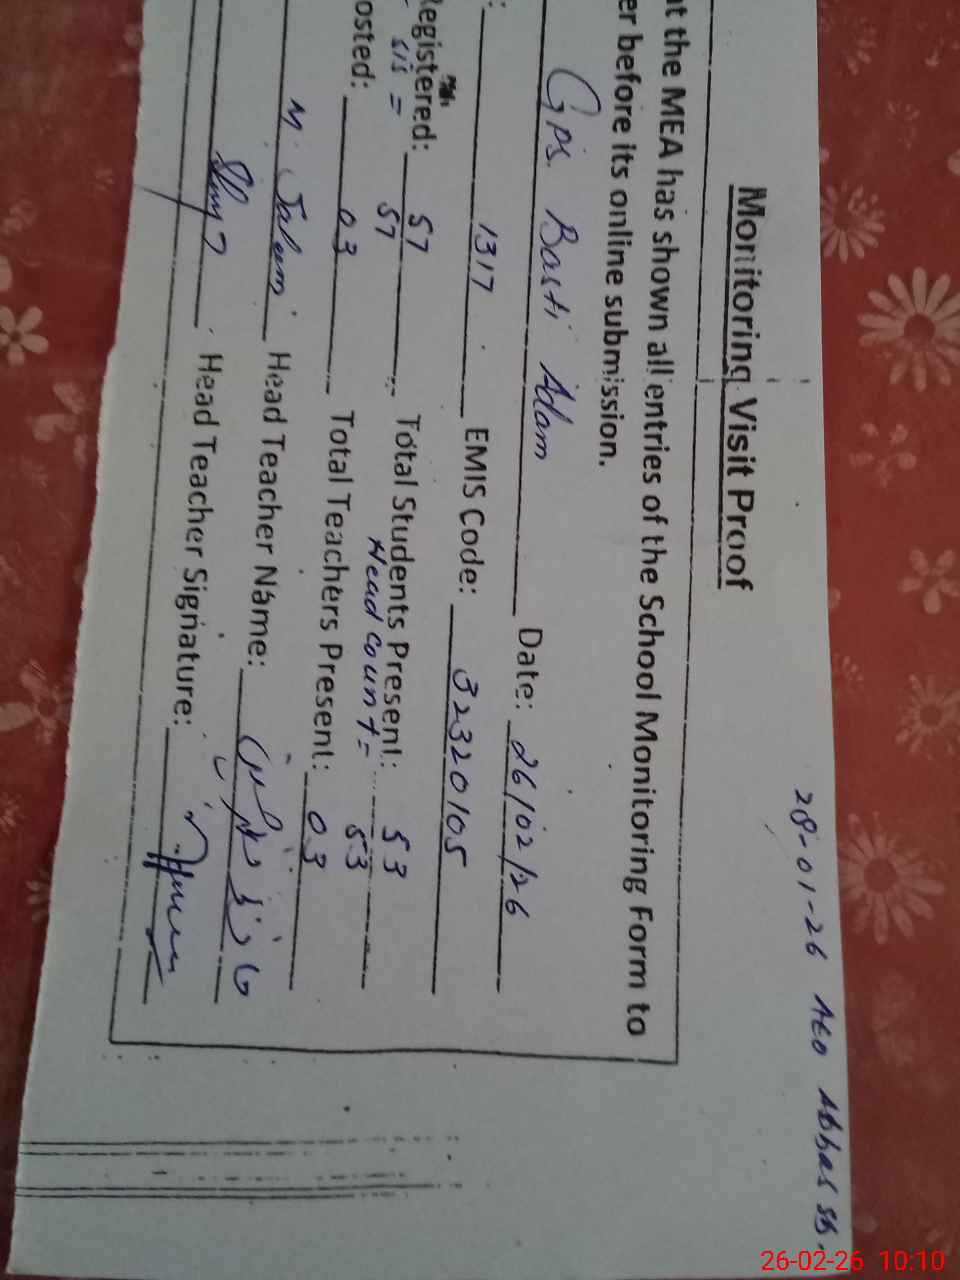 28-01-26 AEO Abbas sb.
Monitoring Visit Proof
at the MEA has shown all entries of the School Monitoring Form to
er before its online submission.
GPS. Basti Adam Date: 26/02/26
: 1317 EMIS Code: 32320105
Registered: 57 Total Students Present: 53
SIS = 57 Head Count = 53
osted: 03 Total Teachers Present: 03
M. Head Teacher Name:
Head Teacher Signature:
26-02-26 10:10